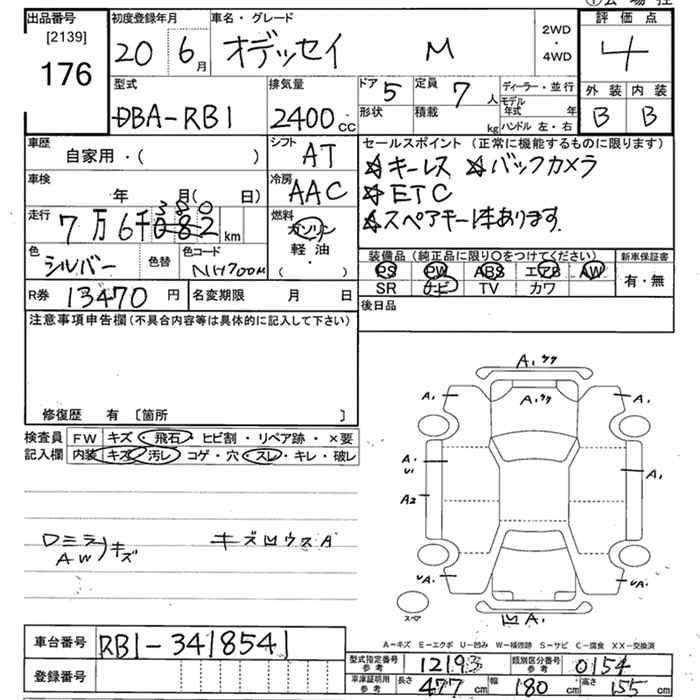 出品番号 初度登録年月 車名・グレード 評価点
[2139] 20 6月 オデッセイ M 2WD・4WD 4
176
型式 排気量 ドア 5 定員 7人 ディーラー・並行 外装 内装
DBA-RB1 2400cc 形状 積載 kg モデル年式 年 B B
ハンドル 左・右
車歴 シフト セールスポイント (正常に機能するものに限ります)
自家用・( ) AT ☆キーレス ☆バックカメラ
車検 年 月( 日) 冷房 AAC ☆ETC
走行 7万6千082km 380 燃料 ガソリン ☆スペアキー1本あります.
軽油・( )
色 シルバー 色替 色コード NH700M 装備品 (純正品に限り○をつけてください) 新車保証書
PS PW ABS エアB AW 有・無
R券 13470円 名変期限 月 日 SR ナビ TV カワ
注意事項申告欄(不具合内容等は具体的に記入して下さい) 後日品
修復歴 有 〔箇所 〕
検査員 FW キズ・飛石・ヒビ割・リペア跡・×要
記入欄 内装 キズ・汚レ・コゲ・穴・スレ・キレ・破レ
A.ケケ
A.ケケ
A. A.
A U1 A1
A2
UA. UA.
凹A.
スペア
ロミラ
AW キズ
キズ凹ウスA
A-キズ E-エクボ U-凹み W-補修跡 S-サビ C-腐食 XX-交換済
車台番号 RB1-3418541
型式指定番号参考 12193 類別区分番号参考 0154
登録番号 車庫証明用参考 長さ 477cm 幅 180cm 高さ 155cm